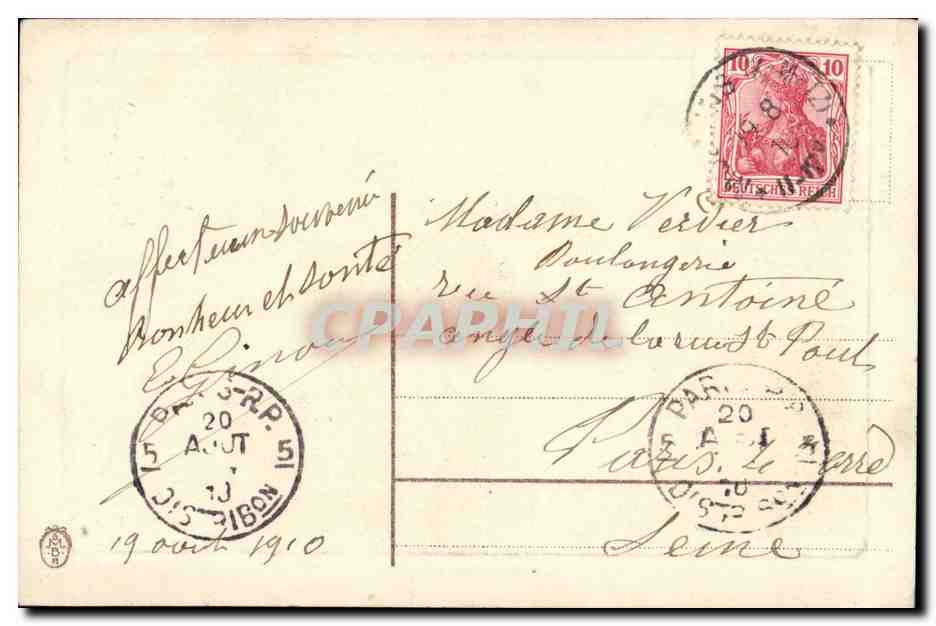 affectueux souvenir
Bonheur et santé
E Ginoux
19 août 1910
10 10
DEUTSCHES REICH
Madame Verdier
Boulangerie
rue St Antoine
angle de la rue St Paul
Paris 4e
Seine
PARIS-R.P.
20
AOUT
5 5
10
DISTRIBON
PARIS R.P.
20
AOUT
5 5
10
DISTRIBON
CPAPHIL
M
B